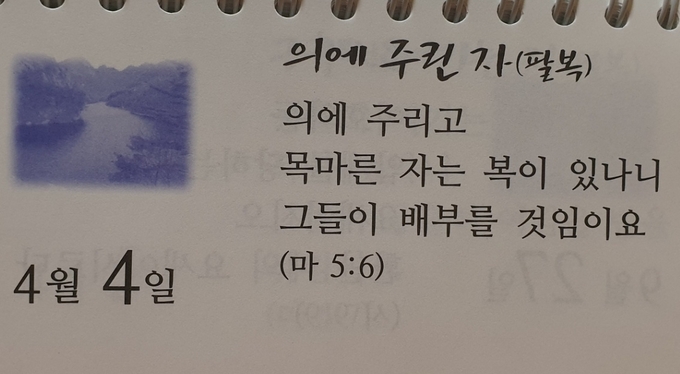 의에 주린 자(팔복)
의에 주리고
목마른 자는 복이 있나니
그들이 배부를 것임이요
(마 5:6)
4월 4일
9월 27일